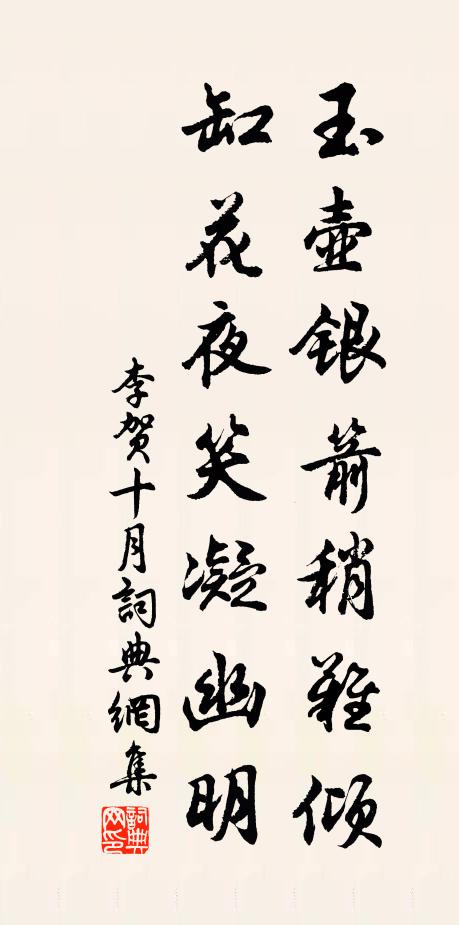 玉壺銀箭稍難傾
缸花夜笑凝幽明
李贺十月詞典網集
詞典网印